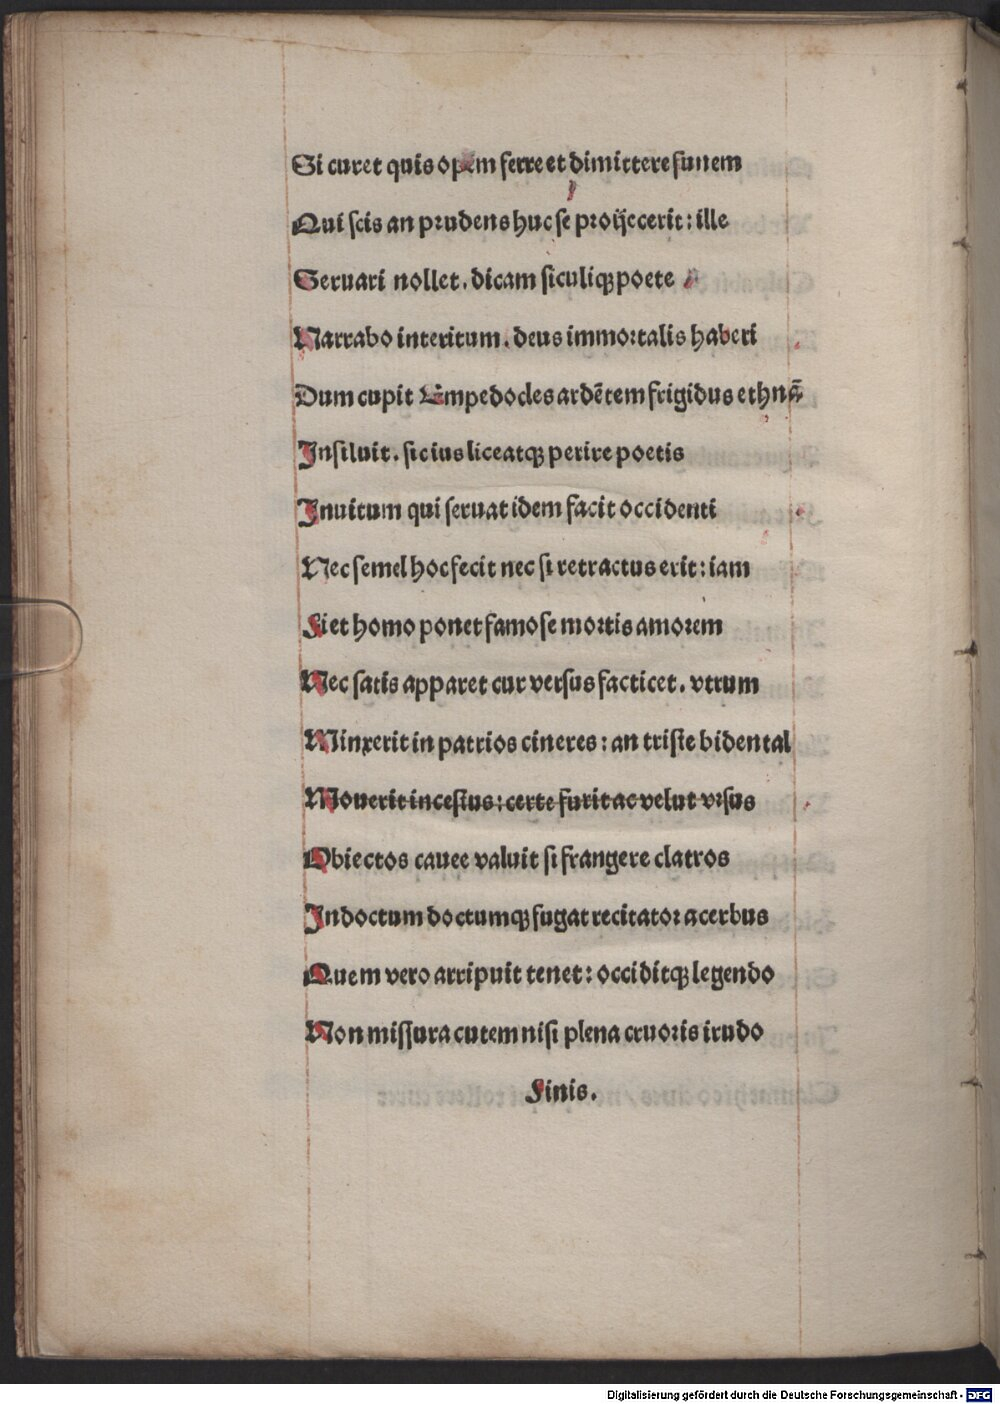 Si curet quis opem ferre et dimittere funem
Qui scis an prudens huc se proijecerit: ille
Seruari nollet. dicam siculiqꝫ poete
Narrabo interitum. deus immortalis haberi
Dum cupit Empedocles ardētem frigidus ethnā
Insiluit. sic ius liceatqꝫ perire poetis
Inuitum qui seruat idem facit occidenti
Nec semel hoc fecit nec si retractus erit: iam
Fiet homo ponet famose mortis amorem
Nec satis apparet cur versus facticet. vtrum
Minxerit in patrios cineres: an triste bidental
Mouerit incestus: certe furit ac velut vrsus
Obiectos cauee valuit si frangere clatros
Indoctum doctumqꝫ fugat recitator acerbus
Quem vero arripuit tenet: occiditqꝫ legendo
Non missura cutem nisi plena cruoris irudo
Finis.
Digitalisierung gefördert durch die Deutsche Forschungsgemeinschaft - DFG